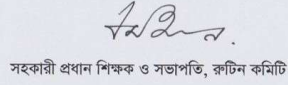 সহকারী প্রধান শিক্ষক ও সভাপতি, রুটিন কমিটি